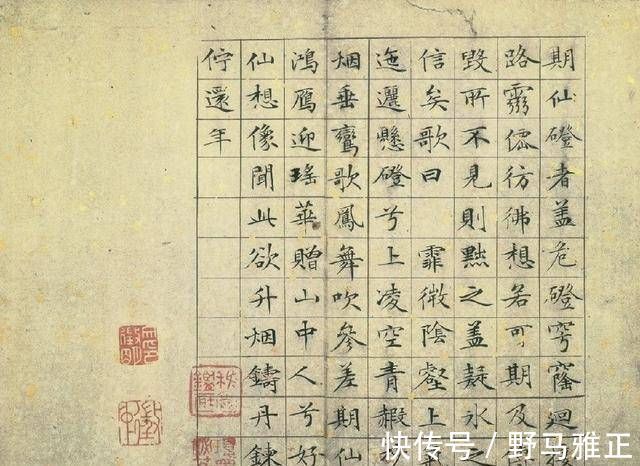 期仙磴者蓋危磴穹窿迴
路靈僊彷彿想若可期及
毀所不見則黜之蓋疑氷
信矣歌曰 霏微陰壑上
迤邐懸磴兮上凌空青
烟垂鸞歌鳳舞吹參差期仙
鴻鴈迎瑤華贈山中人兮好
仙想像聞此欲升烟鑄丹鍊
佇還年
快传号 / 野马雅正